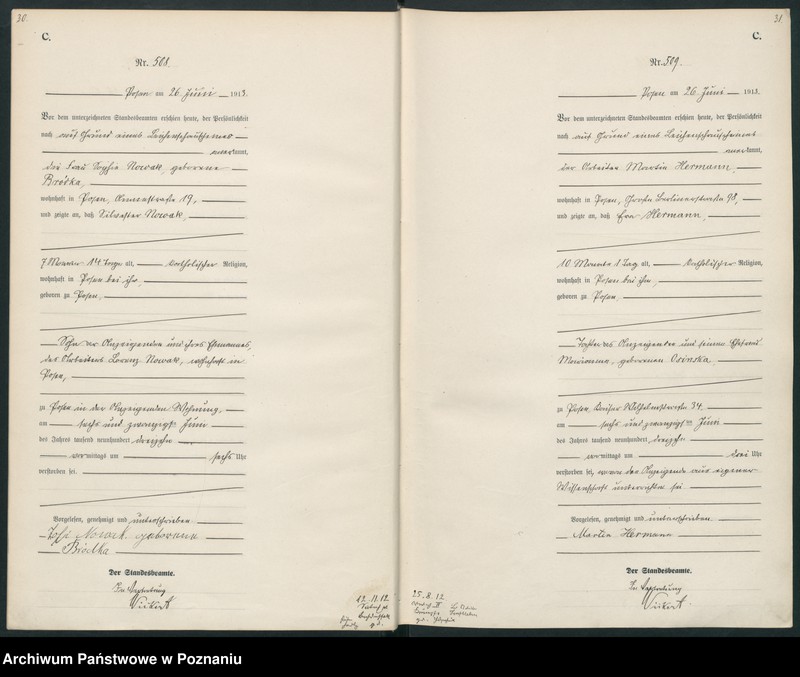 30.
C.
Nr. 508.
Posen am 26 Juni 1913.
Vor dem unterzeichneten Standesbeamten erschien heute, der Persönlichkeit
nach auf Grund eines Leichenschauscheines
anerkannt,
die Frau Sophie Nowak, geborene
Bródka,
wohnhaft in Posen, 19,
und zeigte an, daß Silvester Nowak,
7 Monate 14 Tage alt, katholischer Religion,
wohnhaft in Posen bei ihr,
geboren zu Posen,
Sohn der Anzeigenden und ihres Ehemannes,
des Arbeiters Lorenz Nowak, wohnhaft in
Posen,
zu Posen in der Anzeigenden Wohnung,
am sechs und zwanzigsten Juni
des Jahres tausend neunhundert dreizehn
vormittags um sechs Uhr
verstorben sei.
Vorgelesen, genehmigt und unterschrieben
Nowak geborene
Brodka
Der Standesbeamte.
In Vertretung
12.11.12
31.
C.
Nr. 509.
Posen am 26 Juni 1913.
Vor dem unterzeichneten Standesbeamten erschien heute, der Persönlichkeit
nach auf Grund eines Leichenschauscheines
anerkannt,
der Arbeiter Martin Hermann,
wohnhaft in Posen, Große Berlinerstraße 98,
und zeigte an, daß Eva Hermann,
10 Monate 1 Tag alt, katholischer Religion,
wohnhaft in Posen bei ihm,
geboren zu Posen,
Tochter des Anzeigenden und seiner Ehefrau
Marianna, geborenen Osinska
zu Posen, Kaiser Wilhelmstraße 34,
am sechs und zwanzigsten Juni
des Jahres tausend neunhundert dreizehn
vormittags um drei Uhr
verstorben sei, wovon der Anzeigende aus eigener
Wissenschaft unterrichtet sei
Vorgelesen, genehmigt und unterschrieben
Martin Hermann
Der Standesbeamte.
In Vertretung
25.8.12
Archiwum Państwowe w Poznaniu